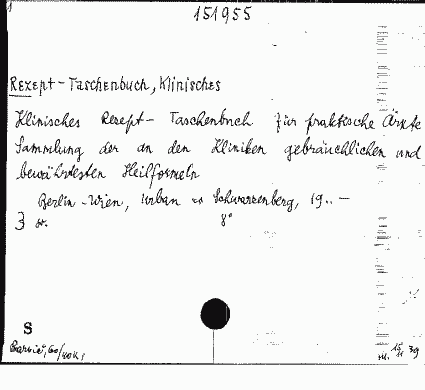 151955
Rezept-Taschenbuch, Klinisches
Klinisches Rezept-Taschenbuch für praktische Ärzte
Sammlung der an den Kliniken gebräuchlichen und
bewährtesten Heilformeln
Berlin-Wien, Urban & Schwarzenberg, 19.. —
8°
S